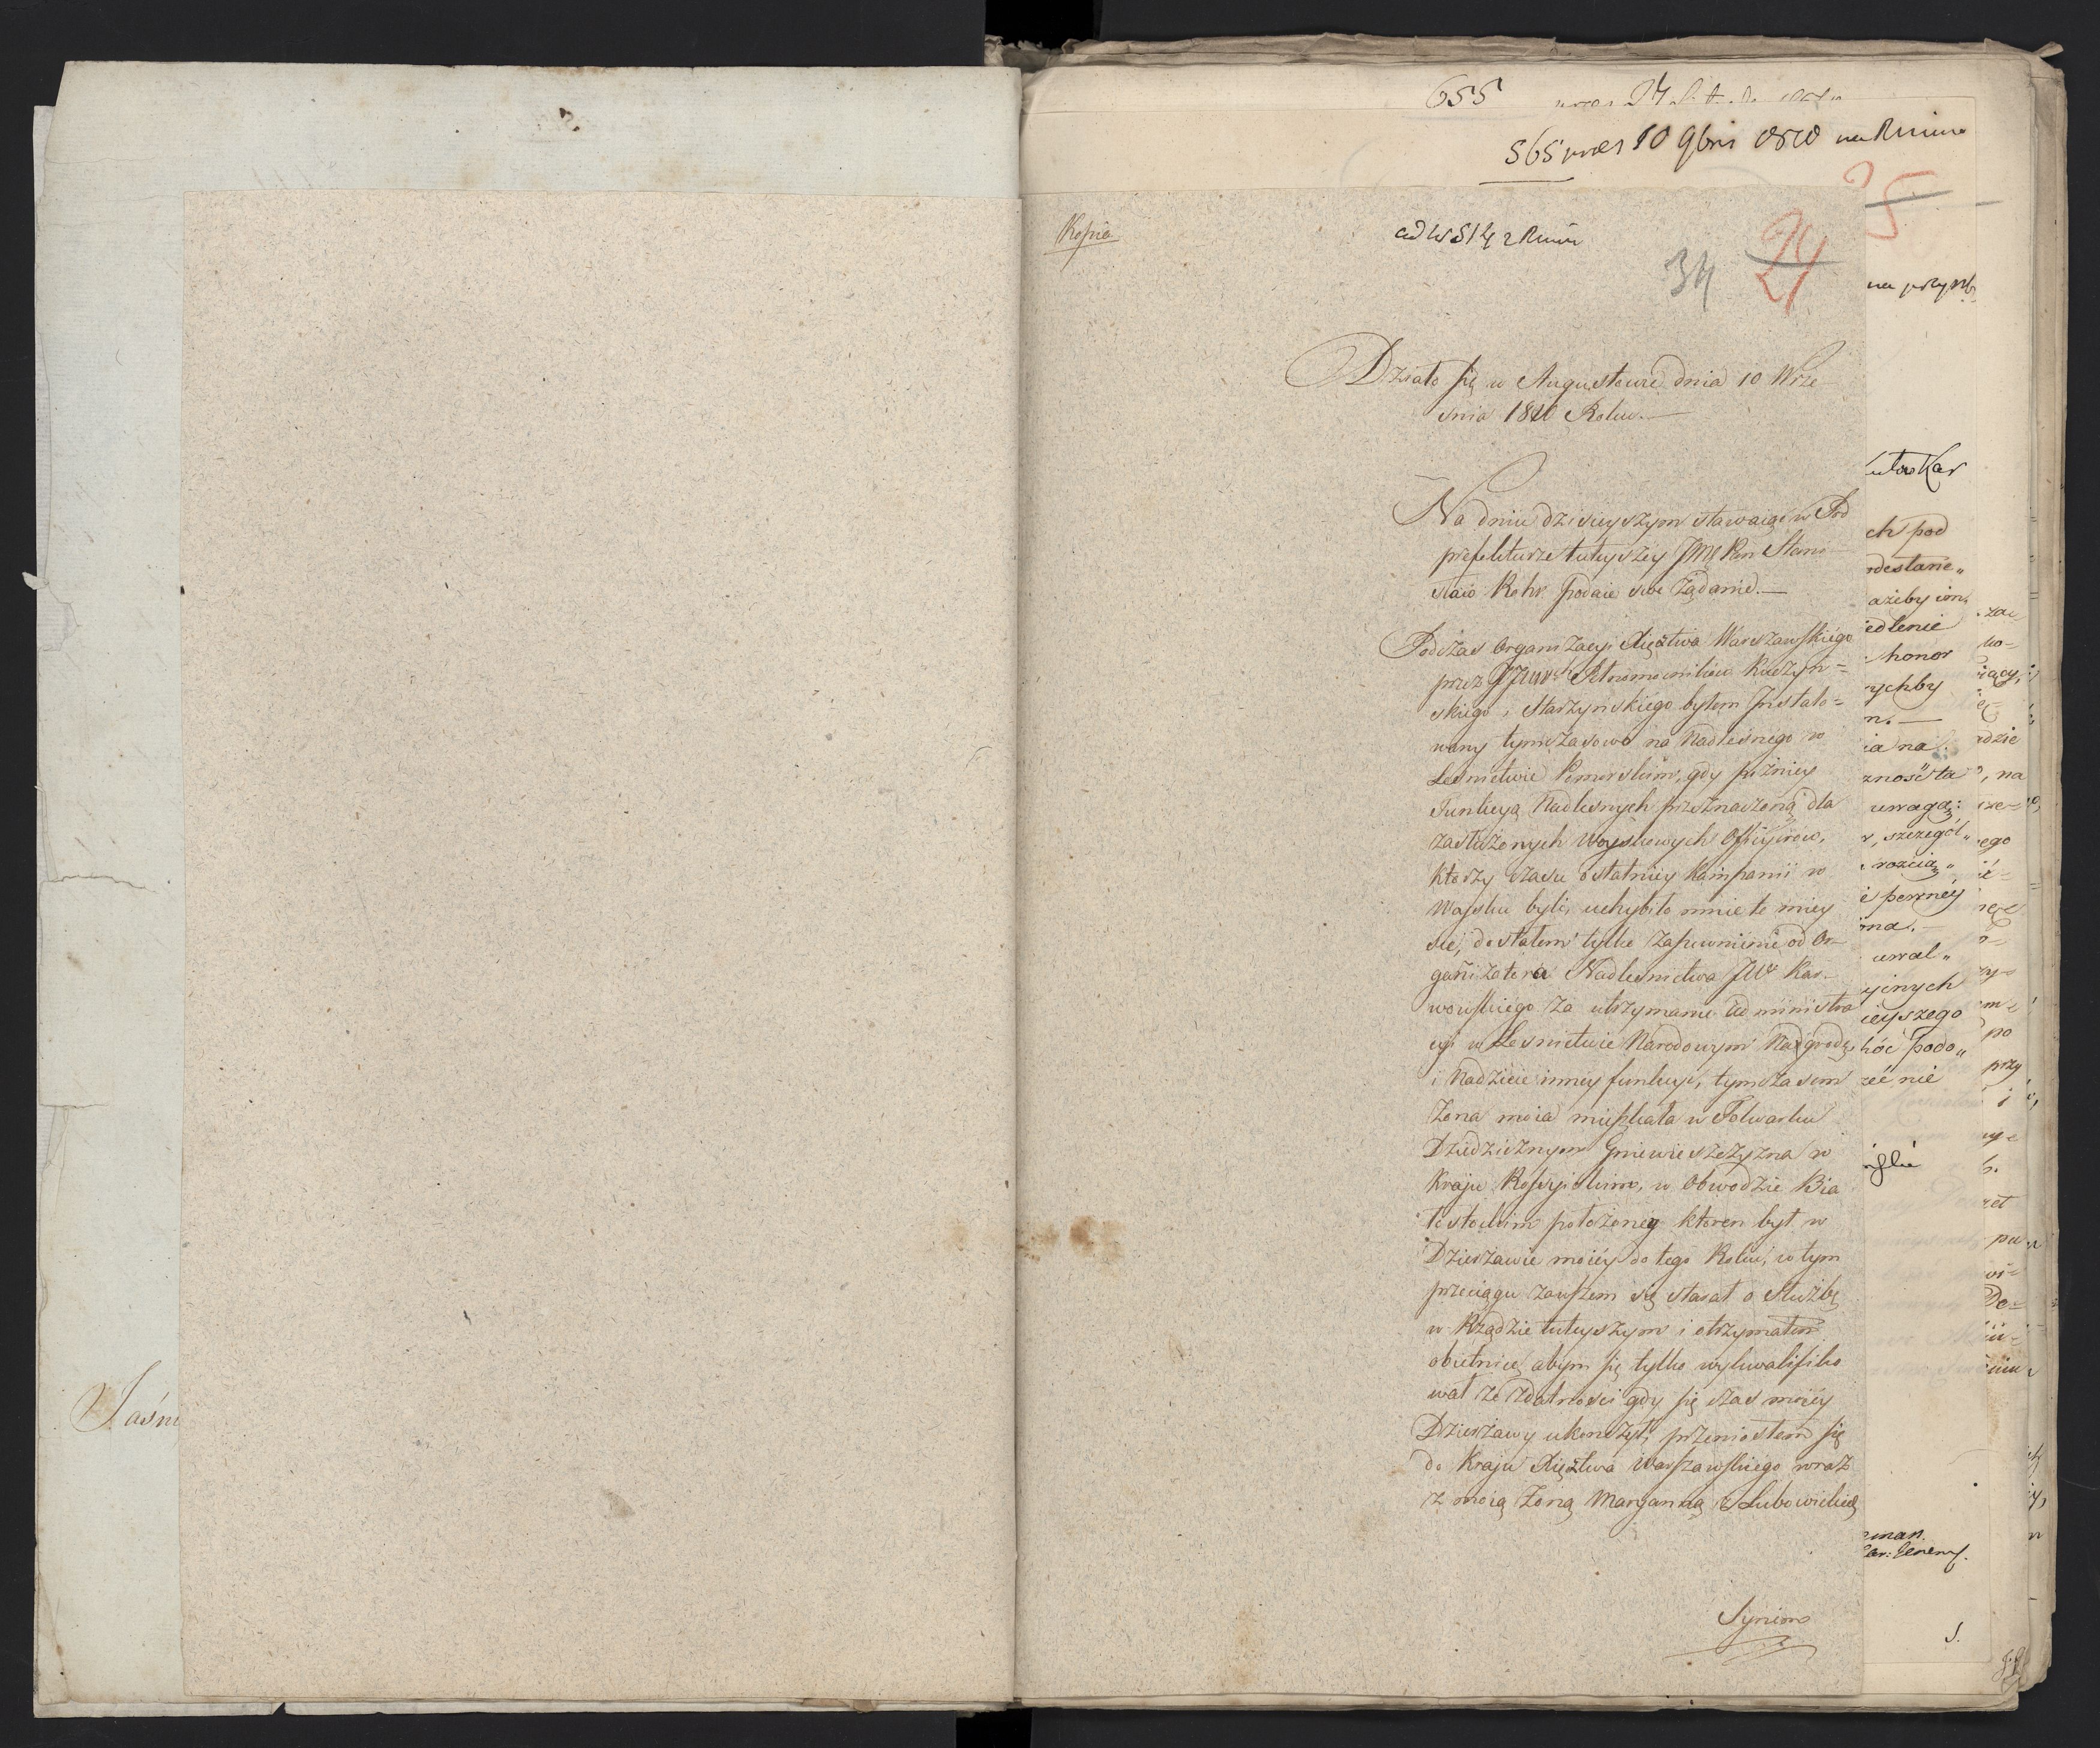 Jaśni
655
565 praes 10 9bris 1810
Kopia
ad 514
34
24
25
Działo się w Augustowie dnia 10 Wrze-
snia 1810 Roku.—
Na dniu dzisieyszym stawaiąc w Pod
prefekturze tuteyszey JMę Pan Stani
sław Rohr podaie swe Żądanie.—
Podczas Organizacyi Xięztwa Warszawskiego
przez Pełnomocników
skiego i Starzynskiego byłem Jnstalo=
wany tymczasowo na Nadleśnego w
Leśnictwie gdy pózniey
Funkcyą Nadlesnych przeznaczoną dla
zasłużonych Woyskowych Officyierow,
ktorzy czasu ostatniey Kampanii w
Woysku byli, uchybiło mnie te miey
sce, dostałem tylko zapewnienie od Or-
ganizatora Nadlesnictwa JW° Kar-
wowskiego za utrzymanie Administra
cyi w Lesnictwie Narodowym Nadgrodę
i Nadzieie inney funkcyi, tymczasem
Żona moia mieszkała w Folwarku
Dziedzicznym Gniewieszczyzna w
Kraju Rossyiskim, w Obwodzie Bia
łostockim położoney ktoren był w
Dzierżawie moiey do tego Roku, w tym
przeciągu zawszem się starał o Służbę
w Rządzie tuteyszym i otrzymałem
obietnicę abym się tylko wykwalifiko
wał ze zdatności gdy się czas moiey
Dzierżawy ukonczył, przeniosłem się
do Kraju Xięztwa Warszawskiego wraz
z moią Żoną Maryanną z Lubowickich
Synem
na przysb
ch pod
ażeby im
edlenie
honor
ychby
n.—
ia na
zność ta
uwagę:
szczegól„
rozcią„
pewney
ona.—
uwal„
yinych
ieyszego
hóć podo„
zeć nie